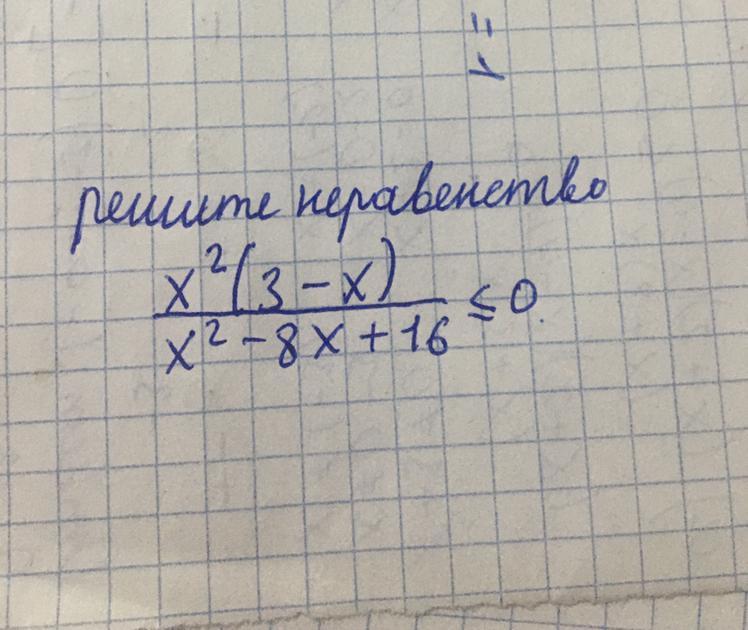 решите неравенство
x²(3-x)/(x²-8x+16) ≤ 0